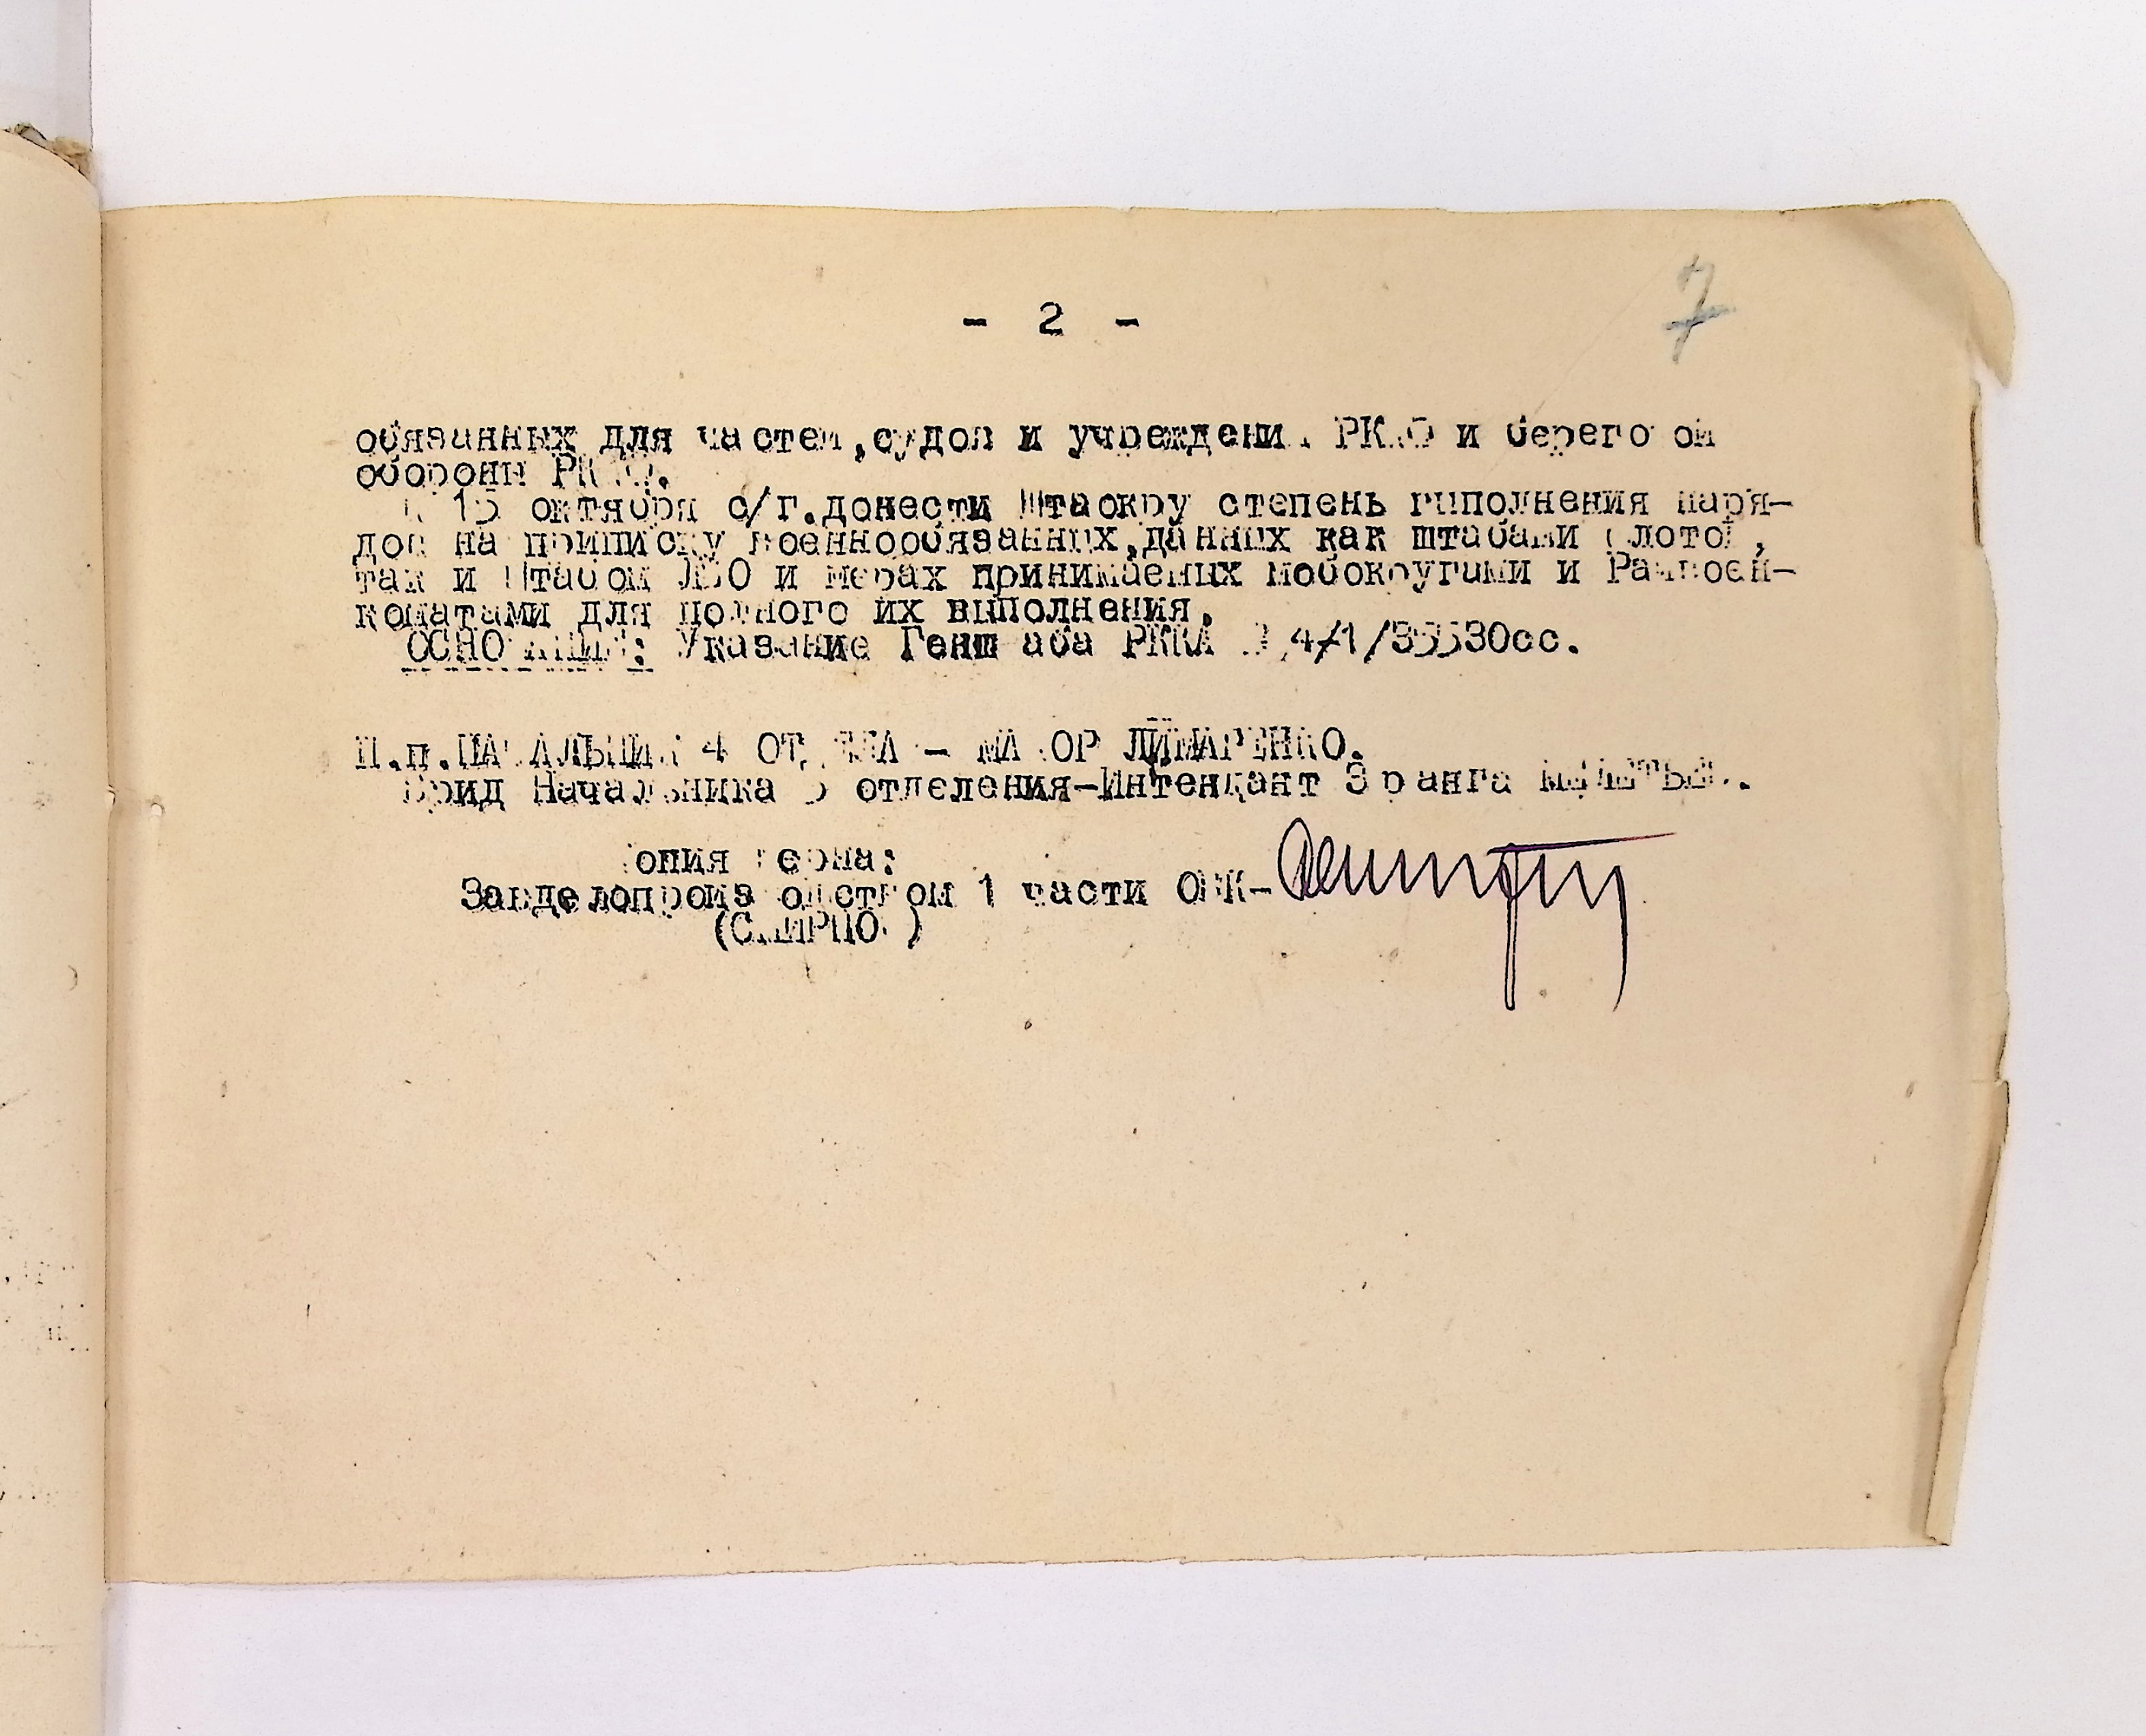 - 2 -
7
обязанных для частей,судов и учреждений РКВФ и береговой
обороны РКВФ.
К 15 октября с/г.донести Штаокру степень выполнения наря-
дов на приписку военнообязанных,данных как штабами флотов,
так и Штабом ЛВО и мерах принимаемых мобокругами и Райвоен-
коматами для полного их выполнения.
ОСНОВАНИЕ: Указание Генштаба РККА 4/1/35530сс.
П.п.НАЧАЛЬНИК 4 ОТДЕЛА - МАЙОР ЛИМАРЕНКО.
Врид Начальника отделения-Интендант 3 ранга
Копия верна:
Завделопроизводством 1 части ОВК-
(СМИРНОВ)